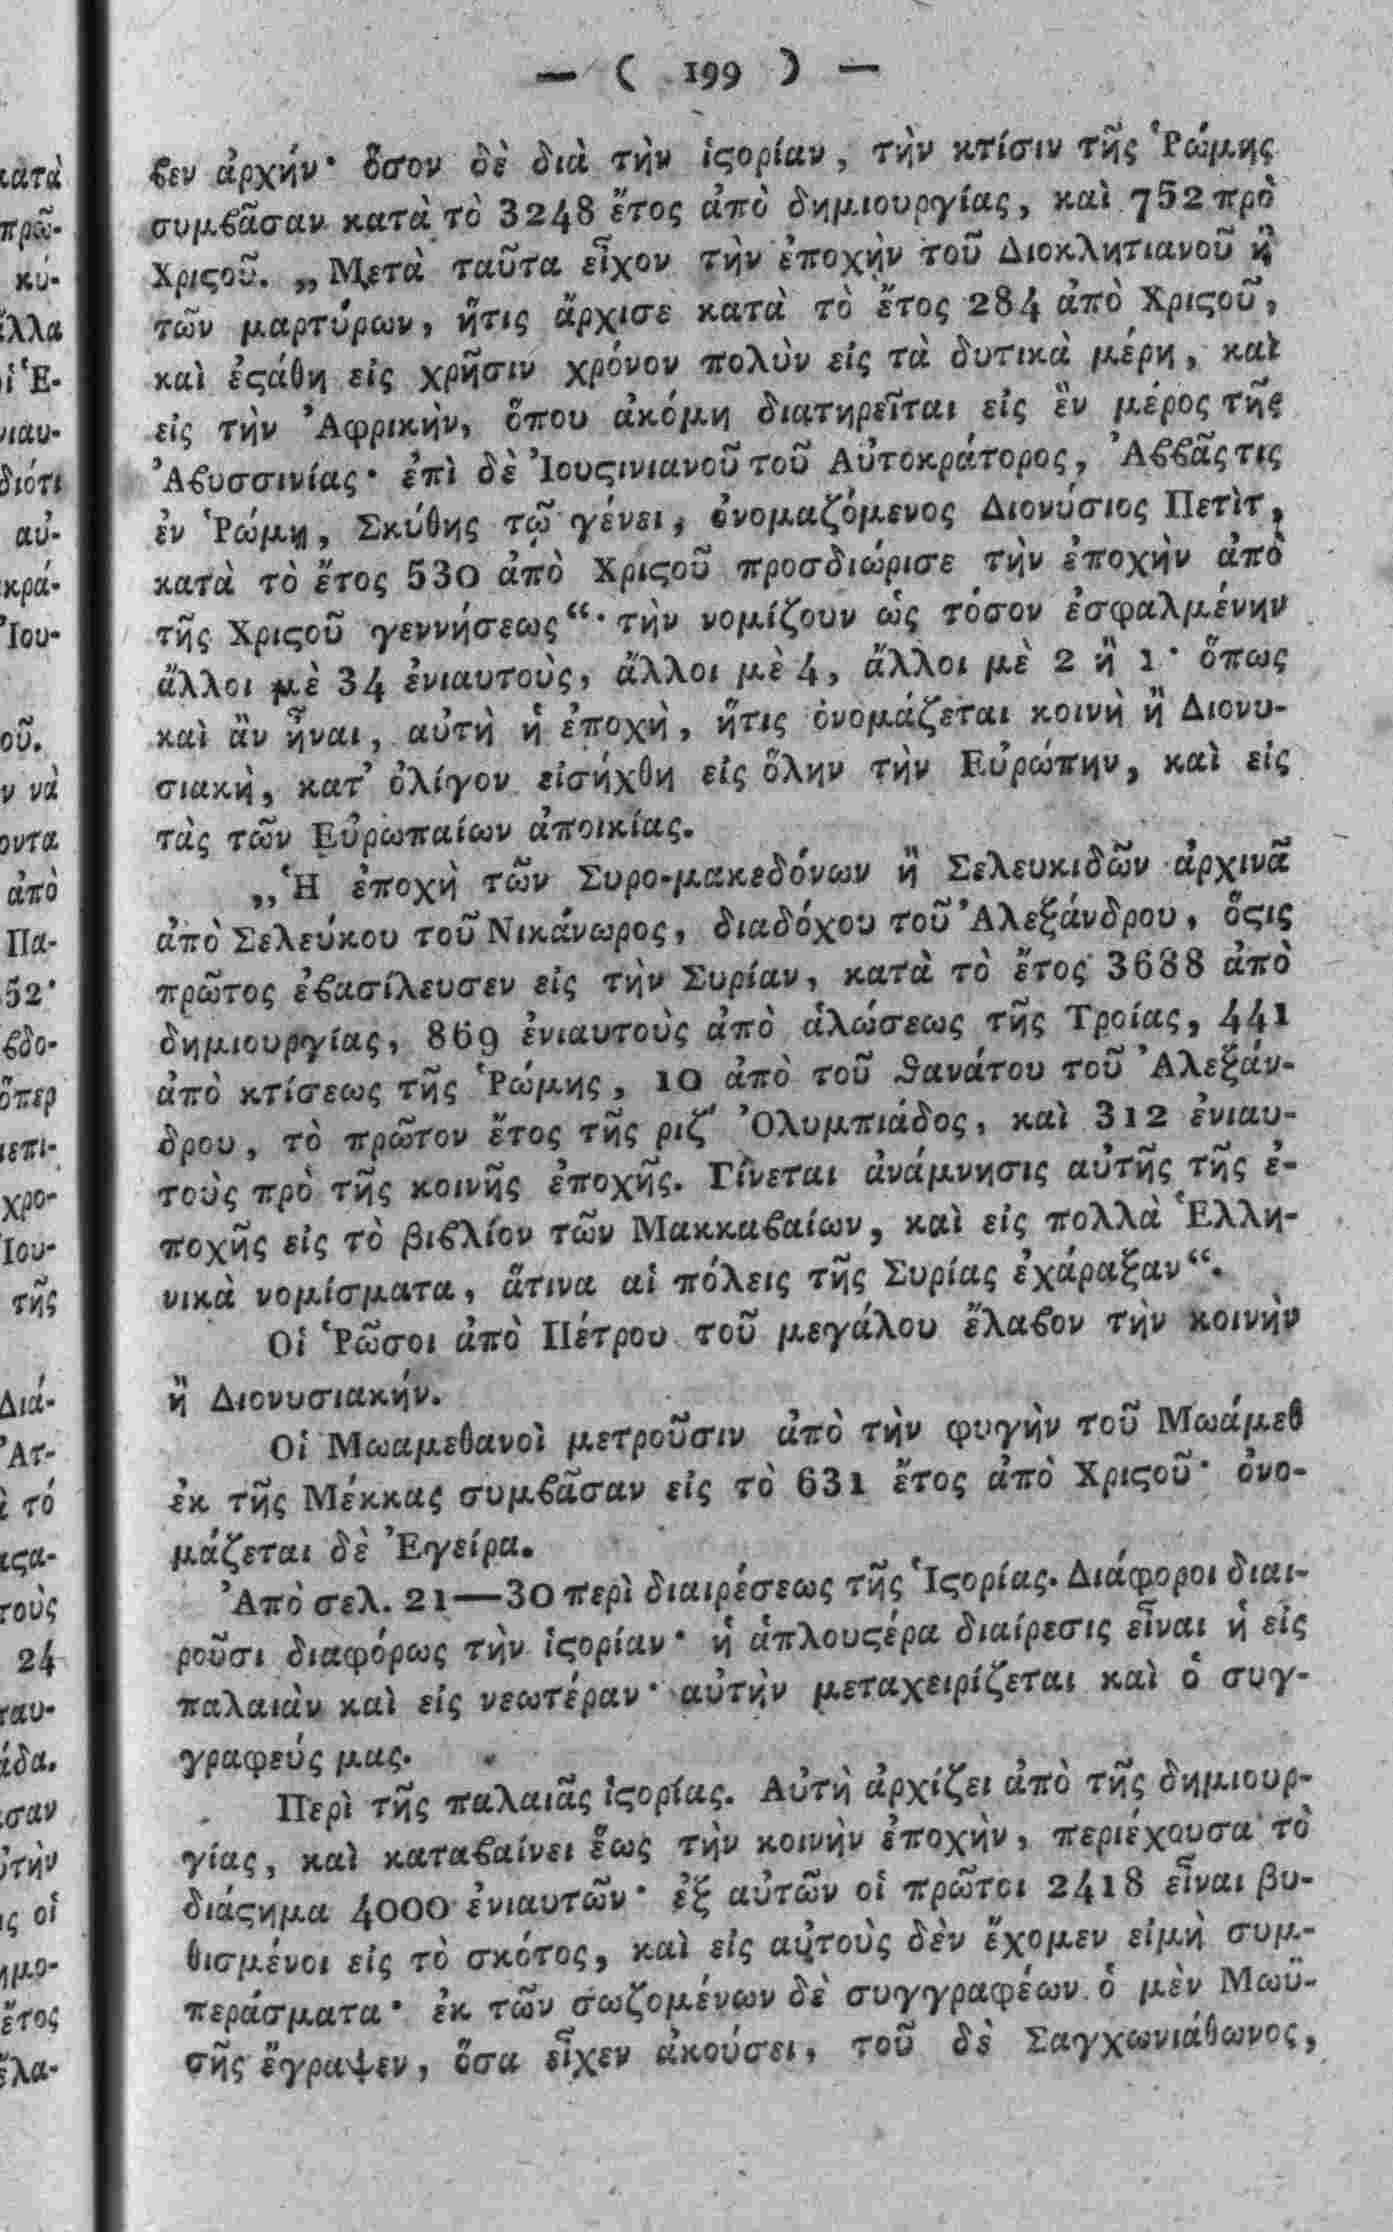 — ( 199 ) —
βεν ἀρχήν· ὅσον δὲ διὰ τὴν ἱϛορίαν, τὴν κτίσιν τῆς Ῥώμης
συμβᾶσαν κατὰ τὸ 3248 ἔτος ἀπὸ δημιουργίας, καὶ 752 πρὸ
Χριϛοῦ. „Μετὰ ταῦτα εἶχον τὴν ἐποχὴν τοῦ Διοκλητιανοῦ ἢ
τῶν μαρτύρων, ἥτις ἄρχισε κατὰ τὸ ἔτος 284 ἀπὸ Χριϛοῦ,
καὶ ἐϛάθη εἰς χρῆσιν χρόνον πολὺν εἰς τὰ δυτικὰ μέρη, καὶ
εἰς τὴν Ἀφρικὴν, ὅπου ἀκόμη διατηρεῖται εἰς ἓν μέρος τῆς
Ἀβυσσινίας· ἐπὶ δὲ Ἰουϛινιανοῦ τοῦ Αὐτοκράτορος, Ἀββᾶς τις
ἐν Ῥώμῃ, Σκύθης τῷ γένει, ὀνομαζόμενος Διονύσιος Πετὶτ,
κατὰ τὸ ἔτος 530 ἀπὸ Χριϛοῦ προσδιώρισε τὴν ἐποχὴν ἀπὸ
τῆς Χριϛοῦ γεννήσεως“· τὴν νομίζουν ὡς τόσον ἐσφαλμένην
ἄλλοι μὲ 34 ἐνιαυτοὺς, ἄλλοι μὲ 4, ἄλλοι μὲ 2 ἢ 1· ὅπως
καὶ ἂν ἦναι, αὐτὴ ἡ ἐποχὴ, ἥτις ὀνομάζεται κοινὴ ἢ Διονυ-
σιακὴ, κατ' ὀλίγον εἰσήχθη εἰς ὅλην τὴν Εὐρώπην, καὶ εἰς
τὰς τῶν Εὐρωπαίων ἀποικίας.
„Ἡ ἐποχὴ τῶν Συρο-μακεδόνων ἢ Σελευκιδῶν ἀρχινᾶ
ἀπὸ Σελεύκου τοῦ Νικάνωρος, διαδόχου τοῦ Ἀλεξάνδρου, ὅϛις
πρῶτος ἐβασίλευσεν εἰς τὴν Συρίαν, κατὰ τὸ ἔτος 3688 ἀπὸ
δημιουργίας, 869 ἐνιαυτοὺς ἀπὸ ἁλώσεως τῆς Τροίας, 441
ἀπὸ κτίσεως τῆς Ῥώμης, 10 ἀπὸ τοῦ θανάτου τοῦ Ἀλεξάν-
δρου, τὸ πρῶτον ἔτος τῆς ριζ' Ὀλυμπιάδος, καὶ 312 ἐνιαυ-
τοὺς πρὸ τῆς κοινῆς ἐποχῆς. Γίνεται ἀνάμνησις αὐτῆς τῆς ἐ-
ποχῆς εἰς τὸ βιβλίον τῶν Μακκαβαίων, καὶ εἰς πολλὰ Ἑλλη-
νικὰ νομίσματα, ἅτινα αἱ πόλεις τῆς Συρίας ἐχάραξαν“.
Οἱ Ῥῶσοι ἀπὸ Πέτρου τοῦ μεγάλου ἔλαβον τὴν κοινὴν
ἢ Διονυσιακήν.
Οἱ Μωαμεθανοὶ μετροῦσιν ἀπὸ τὴν φυγὴν τοῦ Μωάμεθ
ἐκ τῆς Μέκκας συμβᾶσαν εἰς τὸ 631 ἔτος ἀπὸ Χριϛοῦ· ὀνο-
μάζεται δὲ Ἐγείρα.
Ἀπὸ σελ. 21—30 περὶ διαιρέσεως τῆς Ἱϛορίας. Διάφοροι διαι-
ροῦσι διαφόρως τὴν ἱϛορίαν· ἡ ἁπλουϛέρα διαίρεσις εἶναι ἡ εἰς
παλαιὰν καὶ εἰς νεωτέραν· αὐτὴν μεταχειρίζεται καὶ ὁ συγ-
γραφεύς μας.
Περὶ τῆς παλαιᾶς ἱϛορίας. Αὐτὴ ἀρχίζει ἀπὸ τῆς δημιουρ-
γίας, καὶ καταβαίνει ἕως τὴν κοινὴν ἐποχὴν, περιέχουσα τὸ
διάϛημα 4000 ἐνιαυτῶν· ἐξ αὐτῶν οἱ πρῶτοι 2418 εἶναι βυ-
θισμένοι εἰς τὸ σκότος, καὶ εἰς αὐτοὺς δὲν ἔχομεν εἰμὴ συμ-
περάσματα· ἐκ τῶν σωζομένων δὲ συγγραφέων ὁ μὲν Μωϋ-
σῆς ἔγραψεν, ὅσα εἶχεν ἀκούσει, τοῦ δὲ Σαγχωνιάθωνος,